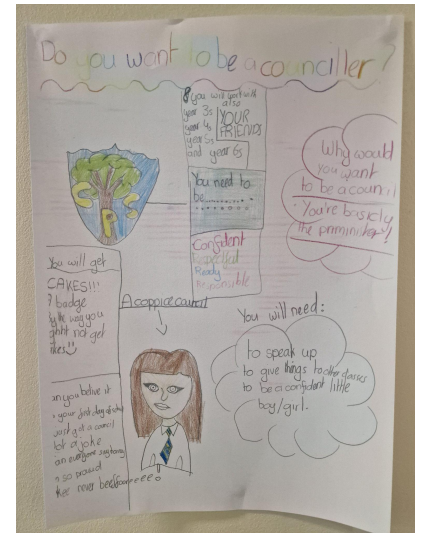 Do you want to be a counciller?
you will work with
also
year 3s
year 4s
year 5s
and year 6s
YOUR
FRIENDS
You need to
be
Confident
Respectful
Ready
Responsible
Why would
you want
to be a council
You're basicly
the priminister!
C P S
You will get
CAKES!!!
badge
the way you
not get
A coppice council
You will need:
to speak up
to give things to other classes
to be a confident little
boy/girl.
you belive it
your first day of
just got a council
a joke
an everyone
so proud
never